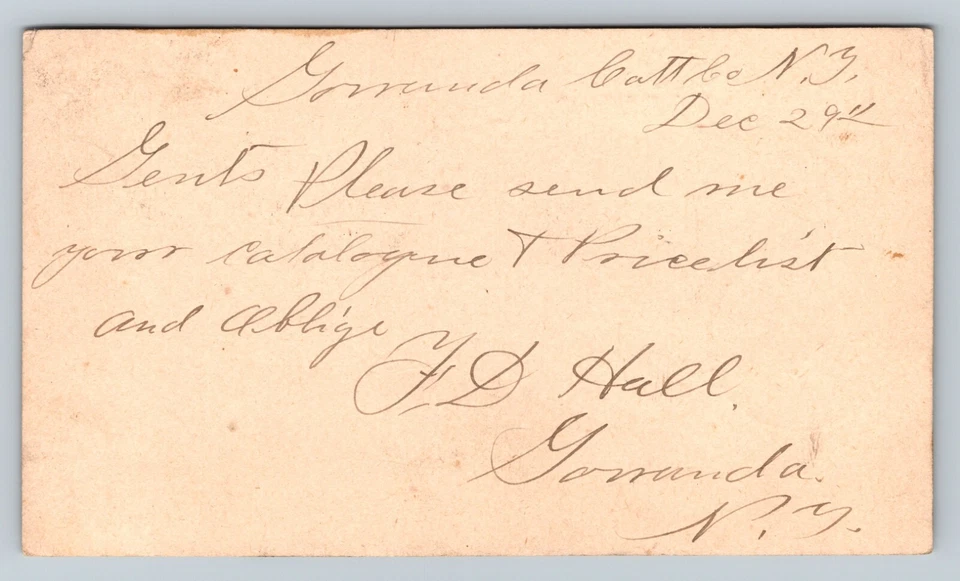 Gowanda Catt Co N.Y.
Dec 29th
Gents Please send me
your catalogue & Pricelist
and Oblige
F. D Hall.
Gowanda.
N.Y.